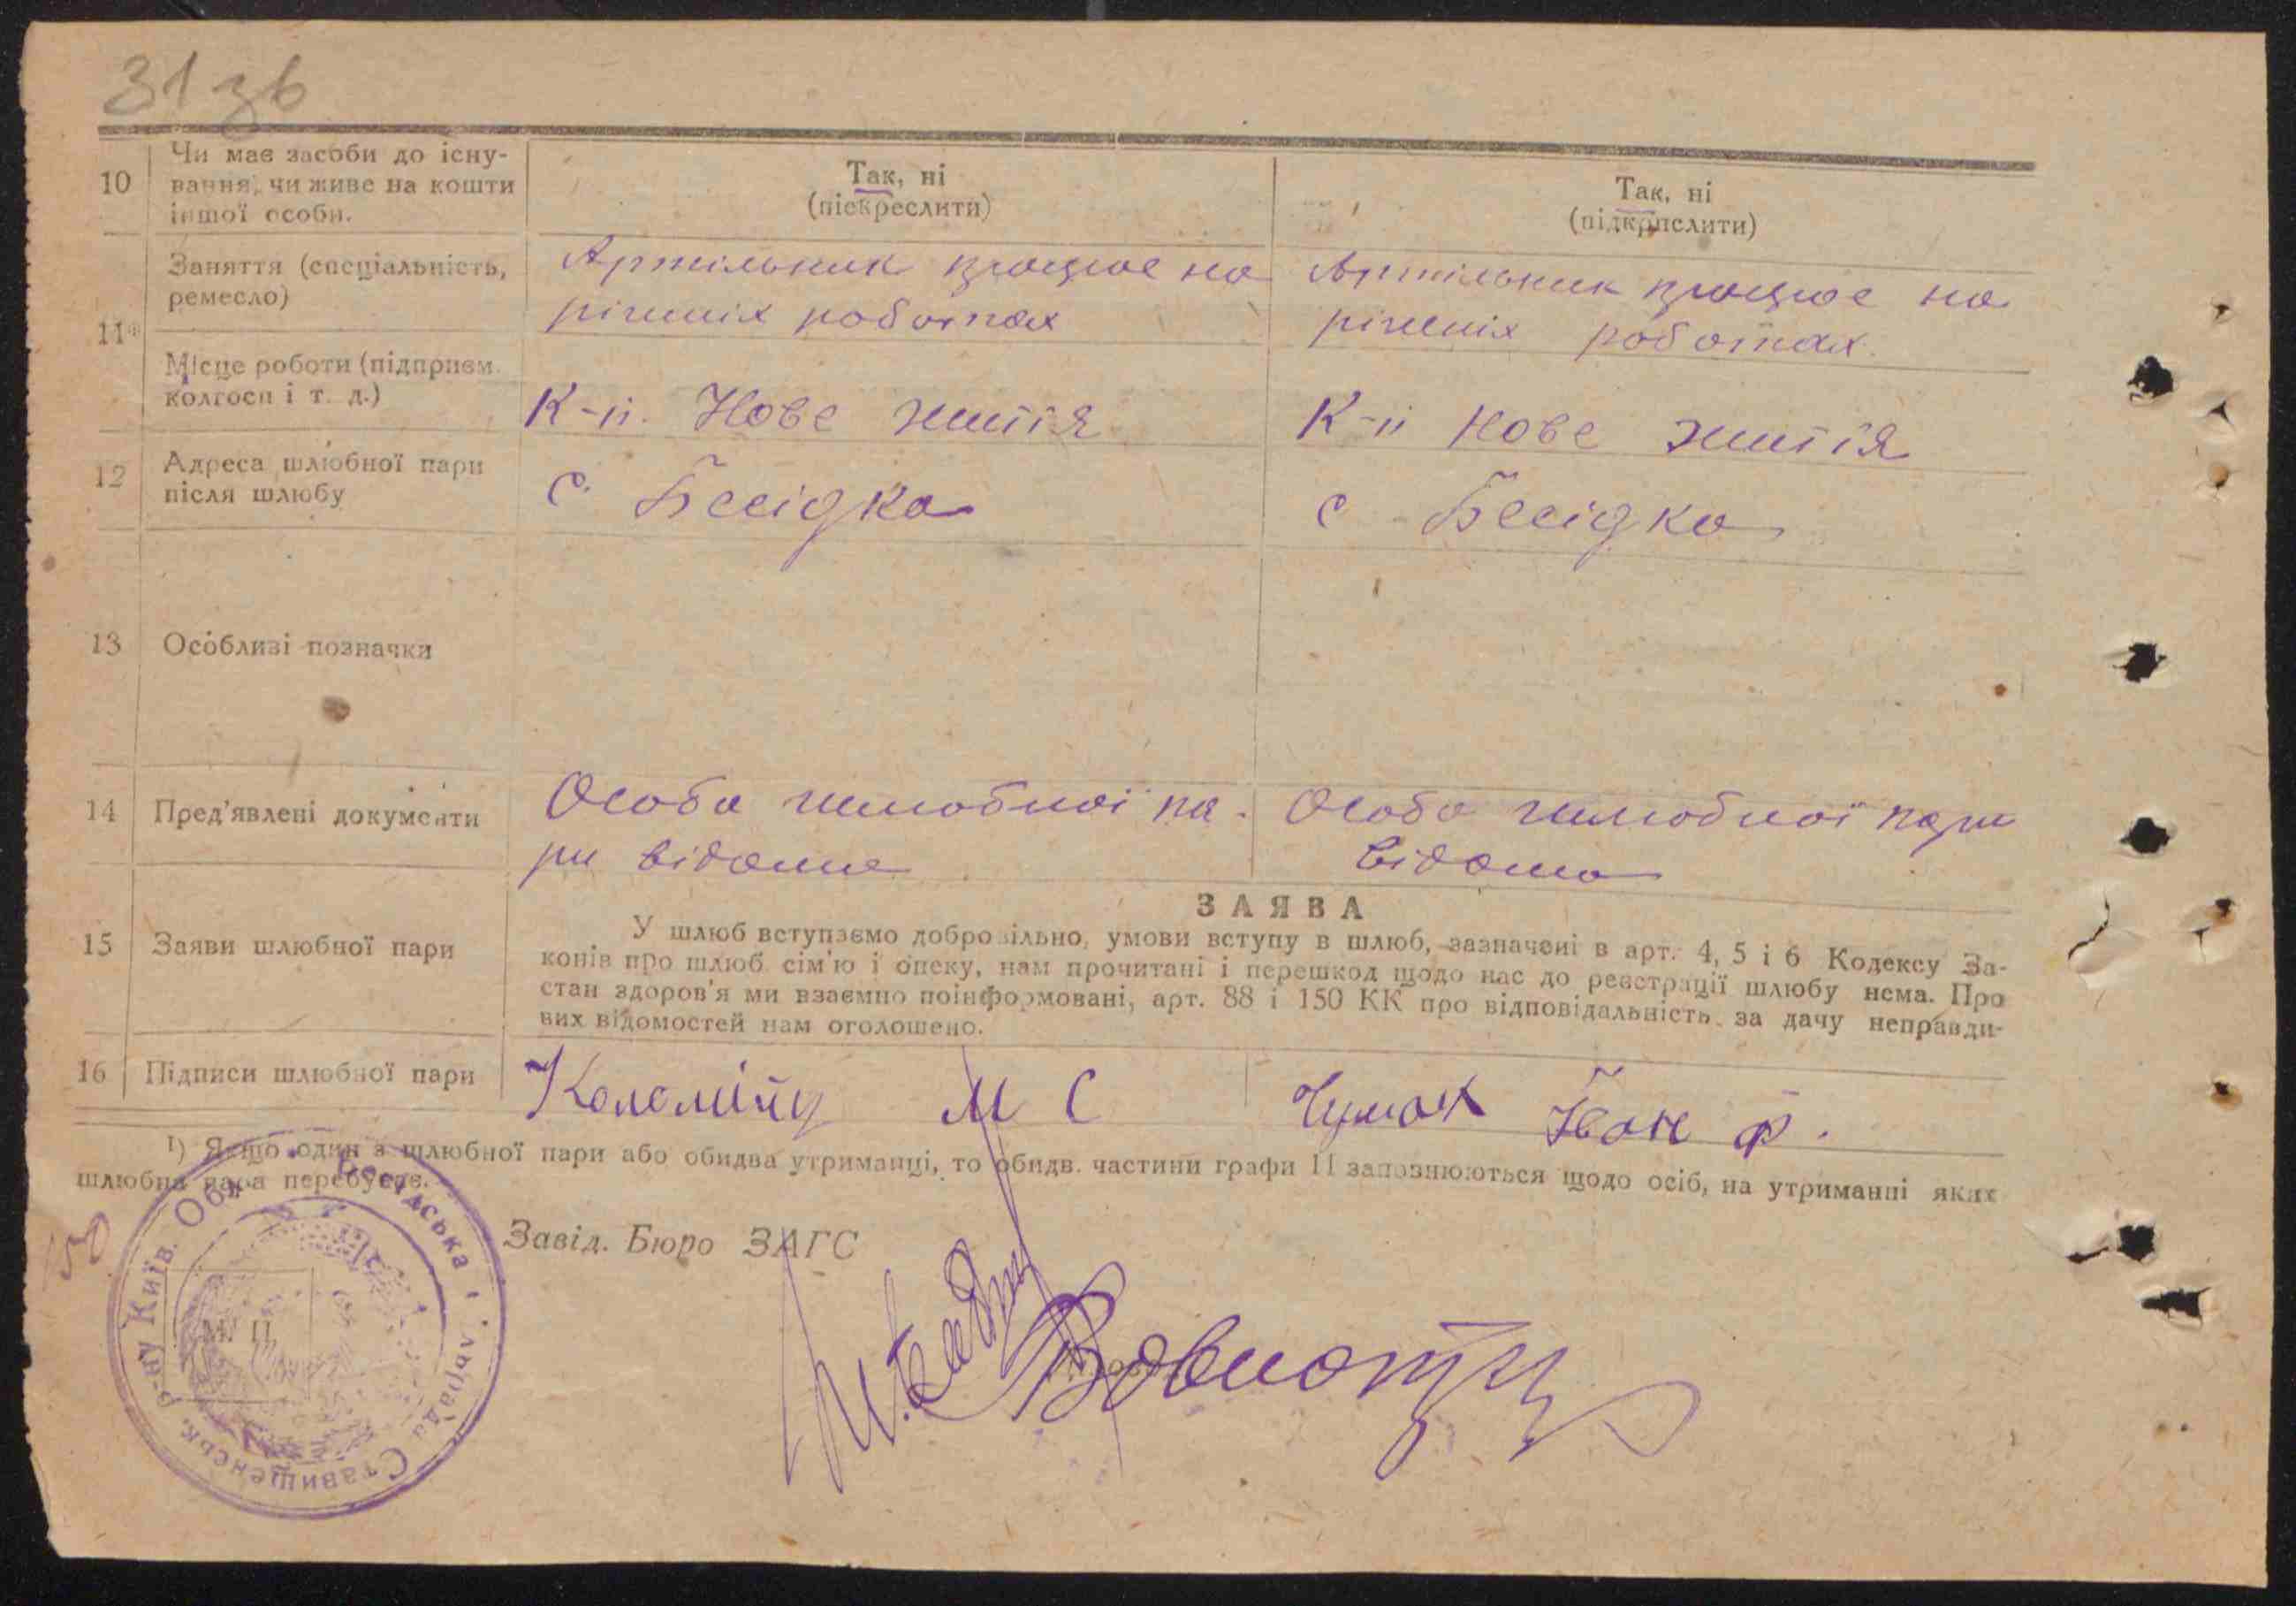 31 зв
10
Чи має засоби до існу-
вання, чи живе на кошти
іншої особи.
Так, ні
(підкреслити)
Так, ні
(підкрислити)
11
Заняття (спеціальність,
ремесло)
Артільник працює на
різних роботах
Артільник працює на
різних роботах.
Місце роботи (підприєм.
колгосп і т. д.)
К-п. Нове життя
К-п Нове життя
12
Адреса шлюбної пари
після шлюбу
с. Бесідка
с Бесідка
13
Особливі позначки
14
Пред'явлені документи
Особа шлюбної па-
ри відома
Особа шлюбної пари
відома
15
Заяви шлюбної пари
ЗАЯВА
У шлюб вступаємо добровільно, умови вступу в шлюб, зазначені в арт. 4, 5 і 6 Кодексу За-
конів про шлюб сім'ю і опеку, нам прочитані і перешкод щодо нас до реєстрації шлюбу нема. Про
стан здоров'я ми взаємно поінформовані, арт. 88 і 150 КК про відповідальність за дачу неправди-
вих відомостей нам оголошено.
16
Підписи шлюбної пари
Коломієць М С
Чумак Іван Ф.
1) Якщо один з шлюбної пари або обидва утриманці, то обидв. частини графи 11 заповнюються щодо осіб, на утриманні яких
шлюбна пара перебуває.
Завід. Бюро ЗАГС
М. П.
Бесідська
рада Ставищенськ. р-ну Київ. Обл.